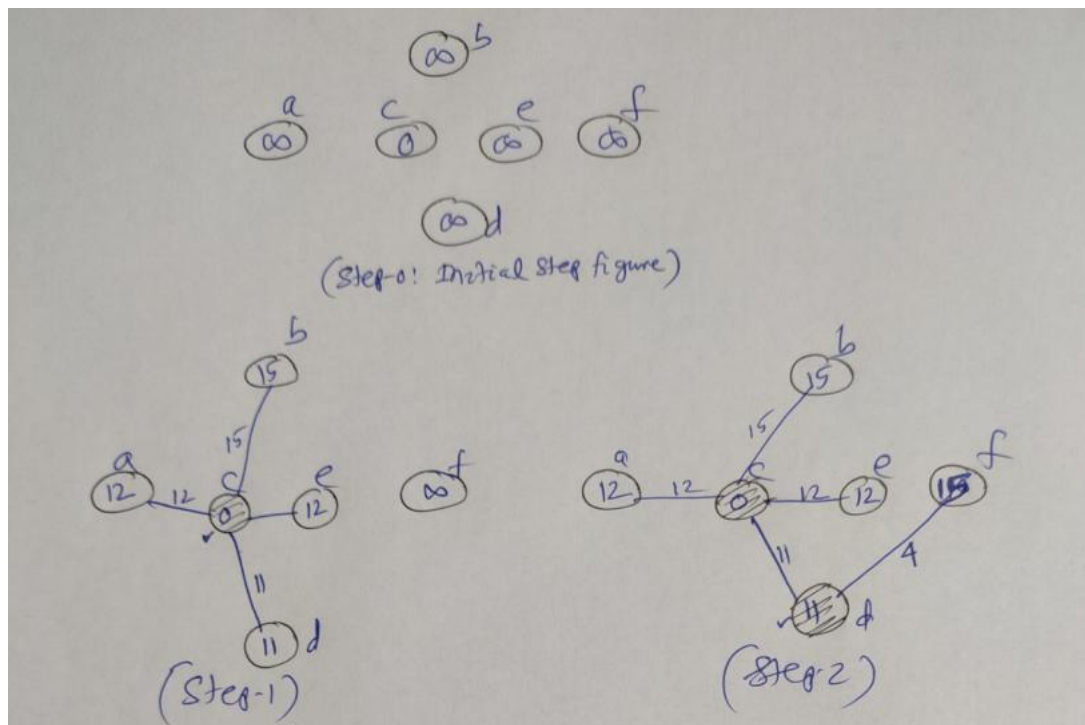 b
∞
a
c
e
f
∞
0
∞
∞
∞
d
(Step-0: Initial Step figure)
b
15
15
a
12
12
c
0
e
12
f
∞
11
11
d
(Step-1)
b
15
15
a
12
12
c
0
12
e
12
f
15
11
4
11
d
(Step-2)